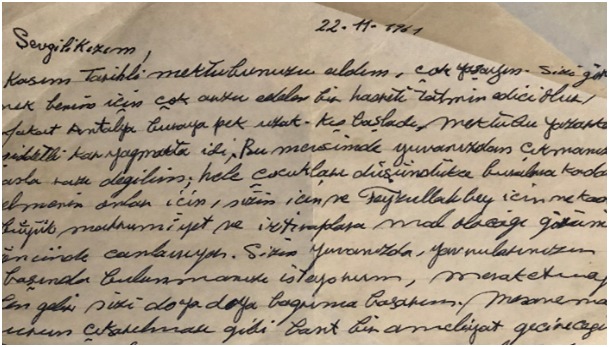 22-11-1961
Sevgili Kızım,
Kasım Tarihli mektubunuzu aldım, çok yaşayın. Sizi gör
mek benim için çok arzu edilen bir hasreti tatmin edici olur,
fakat Antalya buraya pek uzak. Kış başladı, mektubu yazarken
şiddetli kar yağmakta idi. Bu mevsimde yuvanızdan çıkmanıza
asla razı değilim; hele çocukları düşündükçe buralara kadar
gelmenin onlar için, sizin için ve Feyzullah bey için ne kadar
büyük mahrumiyet ve ıztıraplara mal olacağı gözümün
önünde canlanıyor. Sizin yuvanızda, yavrularınızın
başında bulunmanızı isteyorum, merak etmeyin
ben gelir sizi doya doya bağrıma basarım.
çıkarılması gibi basit bir ameliyat geçireceğ